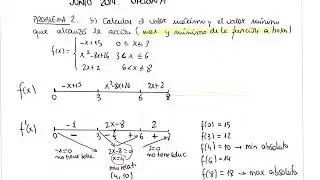 JUNIO 2014 OPCION A
PROBLEMA 2. b) Calcular el valor máximo y el valor mínimo
que alcanzó la acción (max y mínimo de la función a trozos)
f(x) = { -x+15 0 ≤ x ≤ 3
x²-8x+26 3 < x ≤ 6
2x+2 6 < x ≤ 8
f(x) -x+15 x²-8x+26 2x+2
0 3 6 8
f'(x) -1 2x-8 2
0 - 3 - 4 + 6 + 8
-1=0
no tiene soluc
2x-8=0
x=4
min relat
(4, 10)
2=0
no tiene soluc
f(0) = 15
f(3) = 12
f(4) = 10 → min absoluto
f(6) = 14
f(8) = 18 → max absoluto